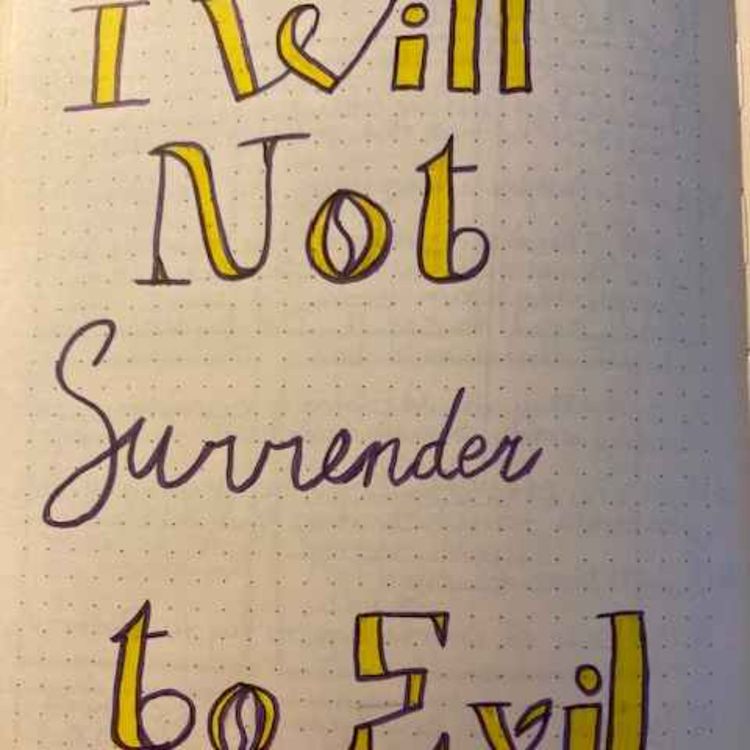 I Will
Not
Surrender
to Evil